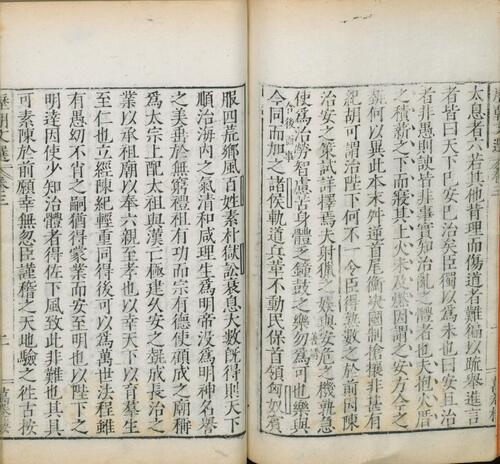 太息者六若其他背理而傷道者難徧以疏舉進言
者皆曰天下巳安巳治矣臣獨以爲未也曰安且治
者非愚則諛皆非事實知治亂之體者也夫抱火厝
之積薪之下而寢其上火未及燃因謂之安方今之
勢何以異此本末舛逆首尾衡决國制搶攘非甚有
紀胡可謂治陛下何不一令臣得熟數之於前因陳
治安之策試詳擇焉夫射獵之娛與安危之機孰急
使爲治勞智慮苦身體乏鐘鼓之樂勿爲可也樂與
今同而加之諸侯軌道兵革不動民保首領匈奴賓
服四荒鄉風百姓素朴獄訟衰息大數旣得則天下
順治海内之氣清和咸理生爲明帝没爲明神名譽
之美垂於無窮禮祖有功而宗有德使顧成之廟稱
爲太宗上配太祖與漢亡極建久安之勢成長治之
業以承祖廟以奉六親至孝也以幸天下以育羣生
至仁也立經陳紀輕重同得後可以爲萬世法程雖
有愚幼不肖之嗣猶得蒙業而安至明也以陛下之
明達因使少知治體者得佐下風致此非難也其具
可素陳於前願幸無忽臣謹稽之天地驗之往古按
歷朝文選 卷三